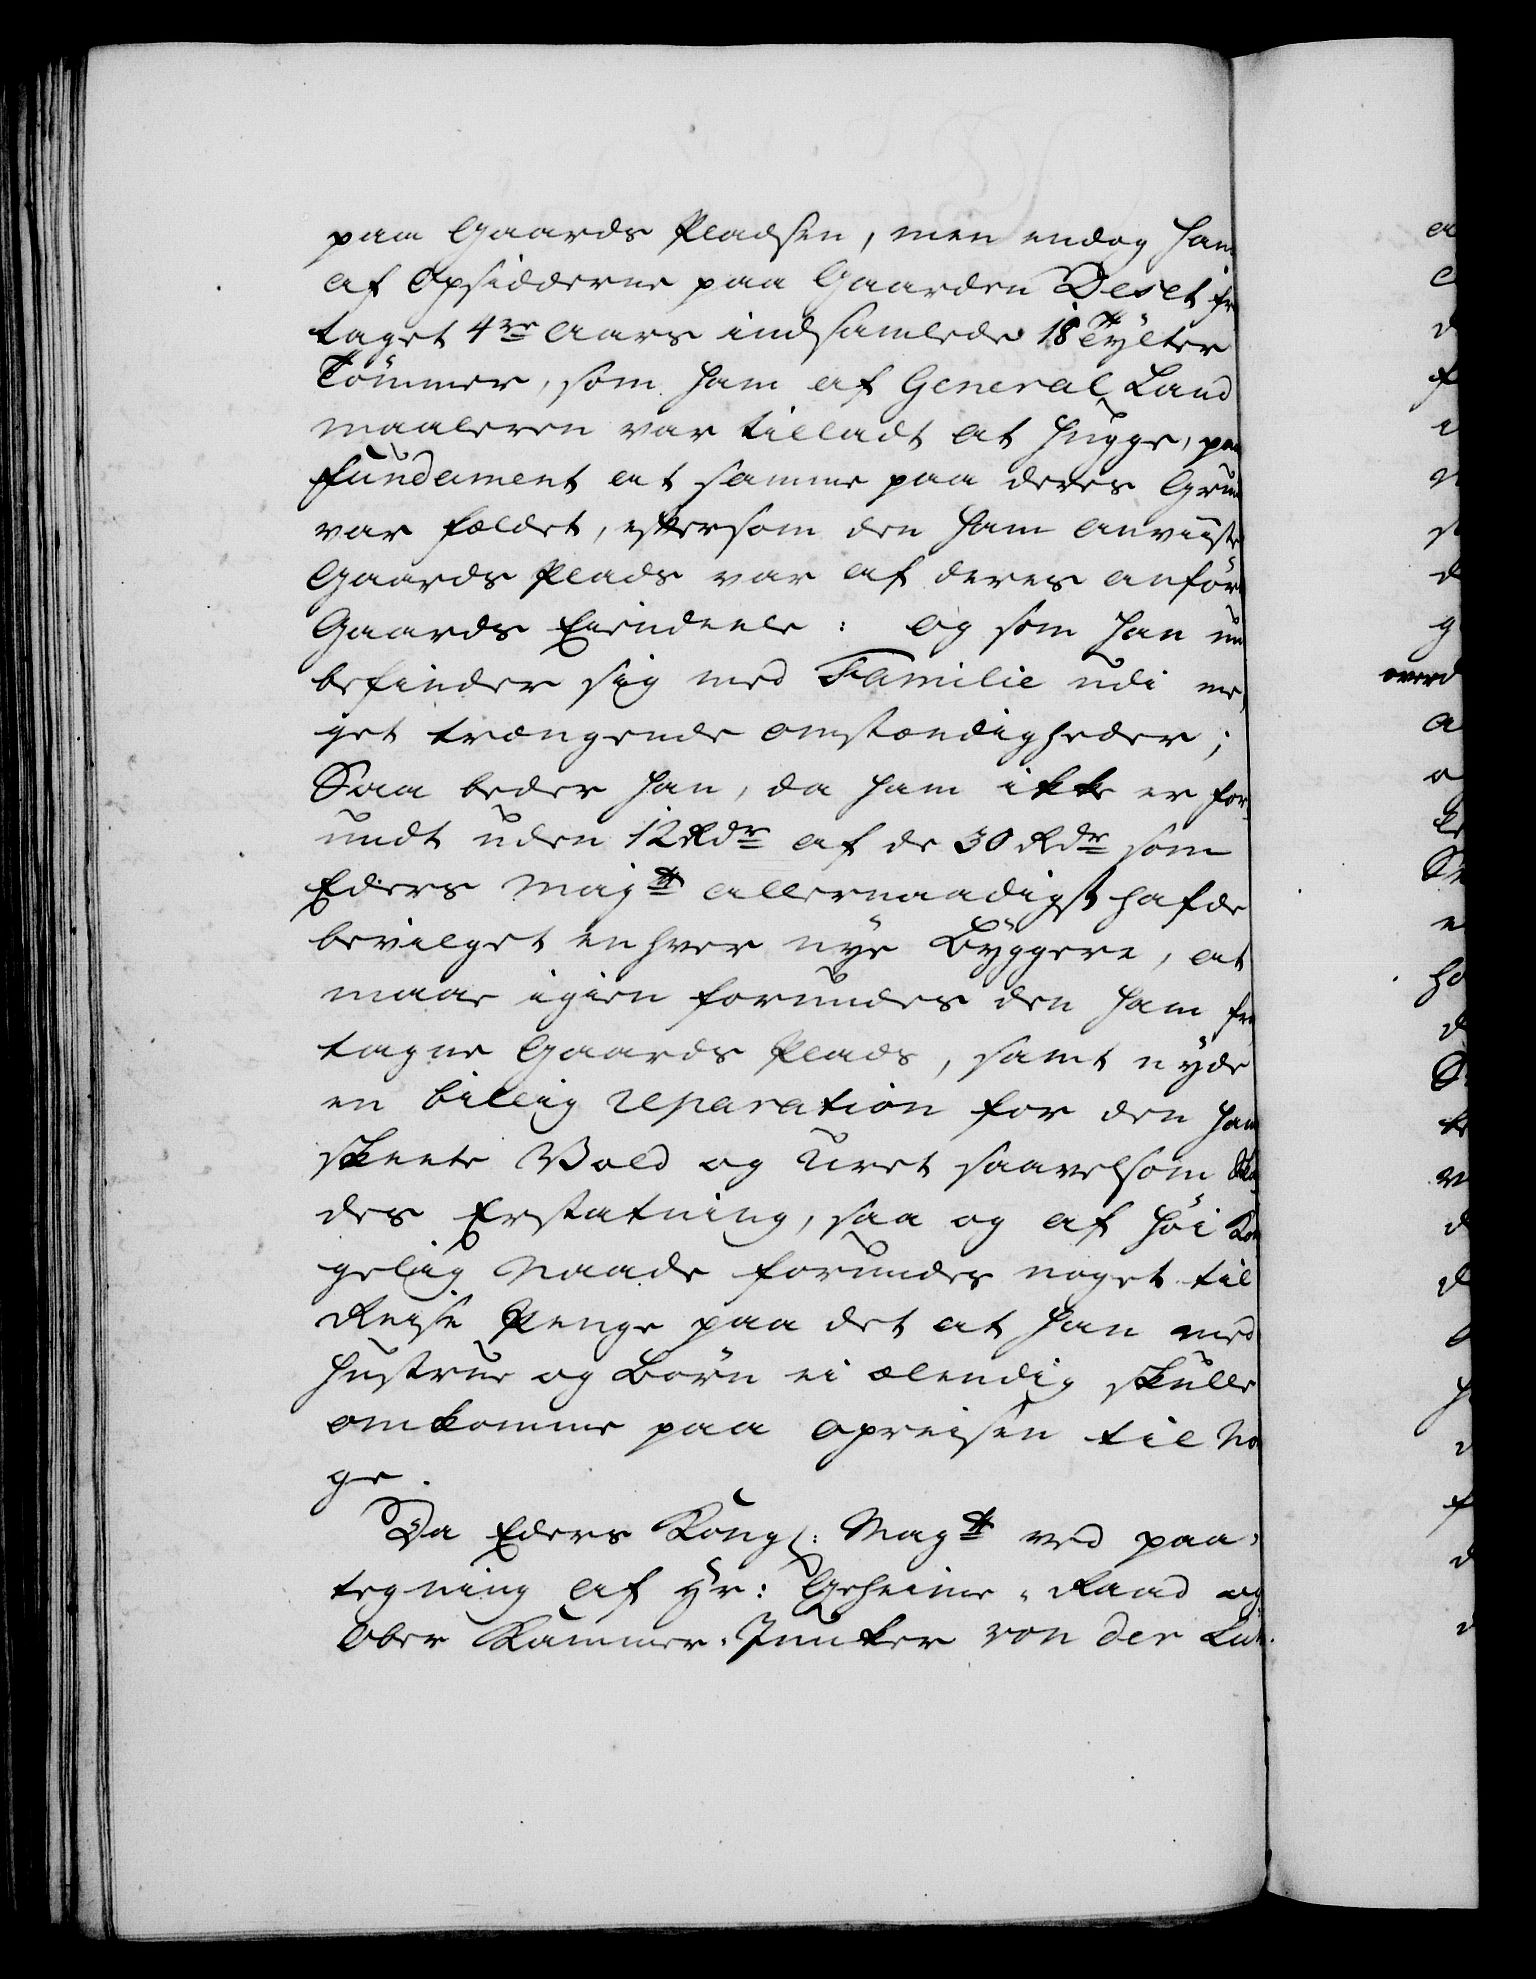 paa Gaards Pladsen, men endog ham
af Opsidderne paa Gaarden Deset fra
taget 4re Aars indsamlede 18 Tylter
Tömmer, som ham af General Land
maaleren var tilladt at hugge, paa
fundament at samme paa deres Grund
var fældet, eftersom den ham anviiste
Gaards Plads var af deres anförte
Gaards Eiendeele: og som han nu
befinder sig med Familie udi me
get trængende omstændigheder;
Saa beder han, da ham ikke er for
undt uden 12 Rdr af de 30 Rdr som
Eders Majtt allernaadigst hafde
bevilget enhver nye Byggere, at
maae igien forundes den ham fra
tagne Gaards Plads, samt nyde
en billig reparation for den ham
skeete Vold og Uret saavelsom Ska
des Erstatning, saa og af höi Kon
gelig Naade forundes noget til
Reise Penge paa det at han med
Hustrue og Börn ei ælendig skulle
omkomme paa opreisen til Nor
ge.
Da Eders Kongl: Majtt ved paa-
tegning af Hr: Geheime-Raad og
Ober Kammer-Junker von der Lüh-